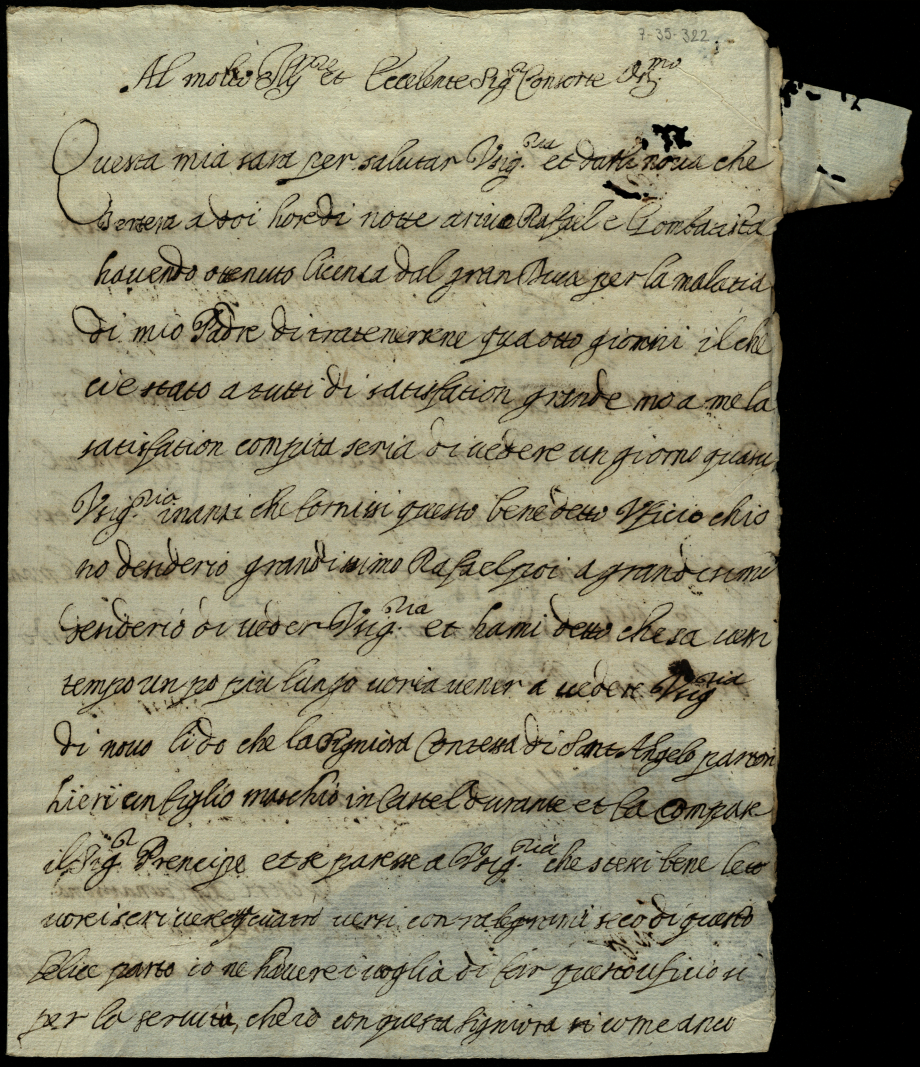 7-35-322
Al molto Ill.re et Eccelente Sig.r Consorte Oss.mo
Questa mia sara per salutar Vsig.ria et darli nova che
hersera a doi hore di notte arivo Rafael e Giombatista
havendo otenuto licensa dal gran Duca per la malatia
di mio Padre di tratenersene qua otto giorni il che
ci e stato a tutti di satisfation grande mo a me la
satisfation compita seria di vedere un giorno quatu
Vsig.ria inansi che fornissi questo benedetto Vficio chio
no desiderio grandissimo Rafael poi a grandissimo
desiderio di veder Vsig.ria et hami detto che sa vessi
tempo un po piu lungo voria vener a vedere Vsig.ria
di novo li do che la Signiora Contessa di Sant Angelo partori
hieri un figlio maschio in Castel durante et la Compare
il Sig.r Prencipe et se paresse a Vsig.ria che stessi bene leto
vorei scrivere quatro versi con ralegrarmi seco di questo
felice parto io ne haverei voglia di far questo uficio si
per la servitu che io con questa Signiora si come anco